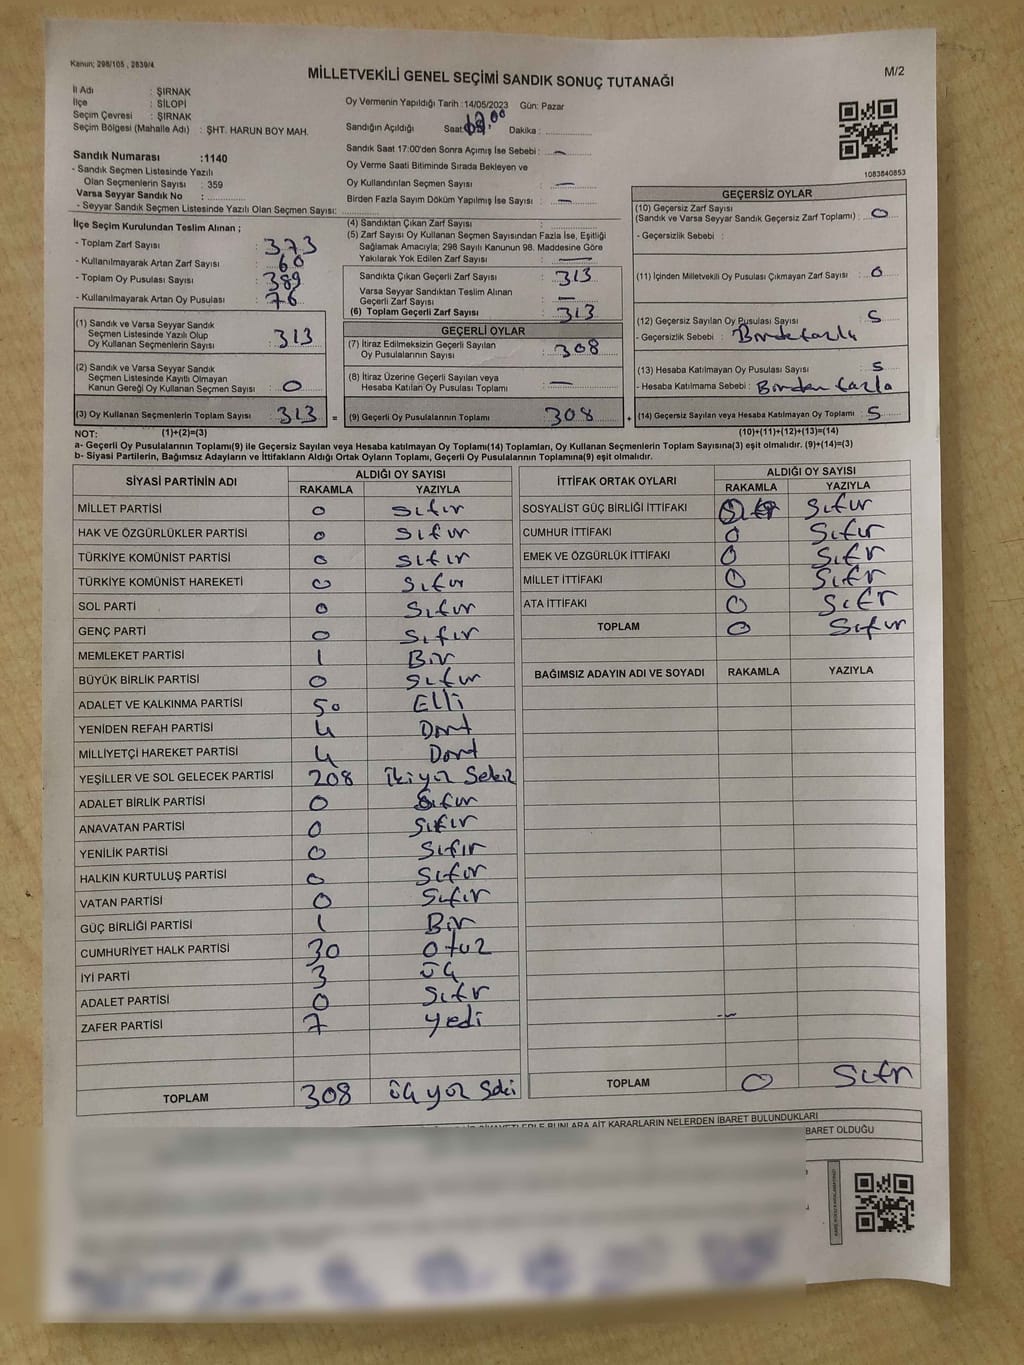 Kanun; 298/105 , 2839/4
MİLLETVEKİLİ GENEL SEÇİMİ SANDIK SONUÇ TUTANAĞI
M/2
İl Adı : ŞIRNAK
İlçe : SİLOPİ
Seçim Çevresi : ŞIRNAK
Seçim Bölgesi (Mahalle Adı) : ŞHT. HARUN BOY MAH.
Sandık Numarası :1140
- Sandık Seçmen Listesinde Yazılı
Olan Seçmenlerin Sayısı : 359
Varsa Seyyar Sandık No :
- Seyyar Sandık Seçmen Listesinde Yazılı Olan Seçmen Sayısı:
Oy Vermenin Yapıldığı Tarih :14/05/2023 Gün: Pazar
Sandığın Açıldığı Saat Dakika :
Sandık Saat 17:00'den Sonra Açımış İse Sebebi : —
Oy Verme Saati Bitiminde Sırada Bekleyen ve
Oy Kullandırılan Seçmen Sayısı : —
Birden Fazla Sayım Döküm Yapılmış İse Sayısı : —
1083840853
İlçe Seçim Kurulundan Teslim Alınan ;
- Toplam Zarf Sayısı : 373
- Kullanılmayarak Artan Zarf Sayısı : 60
- Toplam Oy Pusulası Sayısı : 389
- Kullanılmayarak Artan Oy Pusulası : 76
(1) Sandık ve Varsa Seyyar Sandık
Seçmen Listesinde Yazılı Olup
Oy Kullanan Seçmenlerin Sayısı : 313
(2) Sandık ve Varsa Seyyar Sandık
Seçmen Listesinde Kayıtlı Olmayan
Kanun Gereği Oy Kullanan Seçmen Sayısı : 0
(3) Oy Kullanan Seçmenlerin Toplam Sayısı : 313 =
(4) Sandıktan Çıkan Zarf Sayısı :
(5) Zarf Sayısı Oy Kullanan Seçmen Sayısından Fazla İse, Eşitliği
Sağlamak Amacıyla; 298 Sayılı Kanunun 98. Maddesine Göre
Yakılarak Yok Edilen Zarf Sayısı : —
Sandıkta Çıkan Geçerli Zarf Sayısı : 313
Varsa Seyyar Sandıktan Teslim Alınan
Geçerli Zarf Sayısı : —
(6) Toplam Geçerli Zarf Sayısı : 313
GEÇERLİ OYLAR
(7) İtiraz Edilmeksizin Geçerli Sayılan
Oy Pusulalarının Sayısı : 308
(8) İtiraz Üzerine Geçerli Sayılan veya
Hesaba Katılan Oy Pusulası Toplamı : —
(9) Geçerli Oy Pusulalarının Toplamı : 308 +
GEÇERSİZ OYLAR
(10) Geçersiz Zarf Sayısı
(Sandık ve Varsa Seyyar Sandık Geçersiz Zarf Toplamı) : 0
- Geçersizlik Sebebi :
(11) İçinden Milletvekili Oy Pusulası Çıkmayan Zarf Sayısı : 0
(12) Geçersiz Sayılan Oy Pusulası Sayısı : 5
- Geçersizlik Sebebi :
(13) Hesaba Katılmayan Oy Pusulası Sayısı : 5
- Hesaba Katılmama Sebebi : Birden fazla
(14) Geçersiz Sayılan veya Hesaba Katılmayan Oy Toplamı : 5
NOT: (1)+(2)=(3) (10)+(11)+(12)+(13)=(14)
a- Geçerli Oy Pusulalarının Toplamı(9) ile Geçersiz Sayılan veya Hesaba katılmayan Oy Toplamı(14) Toplamları, Oy Kullanan Seçmenlerin Toplam Sayısına(3) eşit olmalıdır. (9)+(14)=(3)
b- Siyasi Partilerin, Bağımsız Adayların ve İttifakların Aldığı Ortak Oyların Toplamı, Geçerli Oy Pusulalarının Toplamına(9) eşit olmalıdır.
SİYASİ PARTİNİN ADI ALDIĞI OY SAYISI
RAKAMLA YAZIYLA
MİLLET PARTİSİ 0 Sıfır
HAK VE ÖZGÜRLÜKLER PARTİSİ 0 Sıfır
TÜRKİYE KOMÜNİST PARTİSİ 0 Sıfır
TÜRKİYE KOMÜNİST HAREKETİ 0 Sıfır
SOL PARTİ 0 Sıfır
GENÇ PARTİ 0 Sıfır
MEMLEKET PARTİSİ 1 Bir
BÜYÜK BİRLİK PARTİSİ 0 Sıfır
ADALET VE KALKINMA PARTİSİ 50 Elli
YENİDEN REFAH PARTİSİ 4 Dört
MİLLİYETÇİ HAREKET PARTİSİ 4 Dört
YEŞİLLER VE SOL GELECEK PARTİSİ 208 ikiyüz Sekiz
ADALET BİRLİK PARTİSİ 0 Sıfır
ANAVATAN PARTİSİ 0 Sıfır
YENİLİK PARTİSİ 0 Sıfır
HALKIN KURTULUŞ PARTİSİ 0 Sıfır
VATAN PARTİSİ 0 Sıfır
GÜÇ BİRLİĞİ PARTİSİ 1 Bir
CUMHURİYET HALK PARTİSİ 30 otuz
İYİ PARTİ 3 üç
ADALET PARTİSİ 0 Sıfr
ZAFER PARTİSİ 7 yedi
TOPLAM 308 üç yüz Seki
İTTİFAK ORTAK OYLARI ALDIĞI OY SAYISI
RAKAMLA YAZIYLA
SOSYALİST GÜÇ BİRLİĞİ İTTİFAKI Sıfır
CUMHUR İTTİFAKI 0 Sıfır
EMEK VE ÖZGÜRLÜK İTTİFAKI 0 Sıfr
MİLLET İTTİFAKI 0 Sıfr
ATA İTTİFAKI 0 Sıfr
TOPLAM 0 Sıfır
BAĞIMSIZ ADAYIN ADI VE SOYADI RAKAMLA YAZIYLA
TOPLAM 0 Sıfr
BUNLARA AİT KARARLARIN NELERDEN İBARET BULUNDUKLARI
BARET OLDUĞU